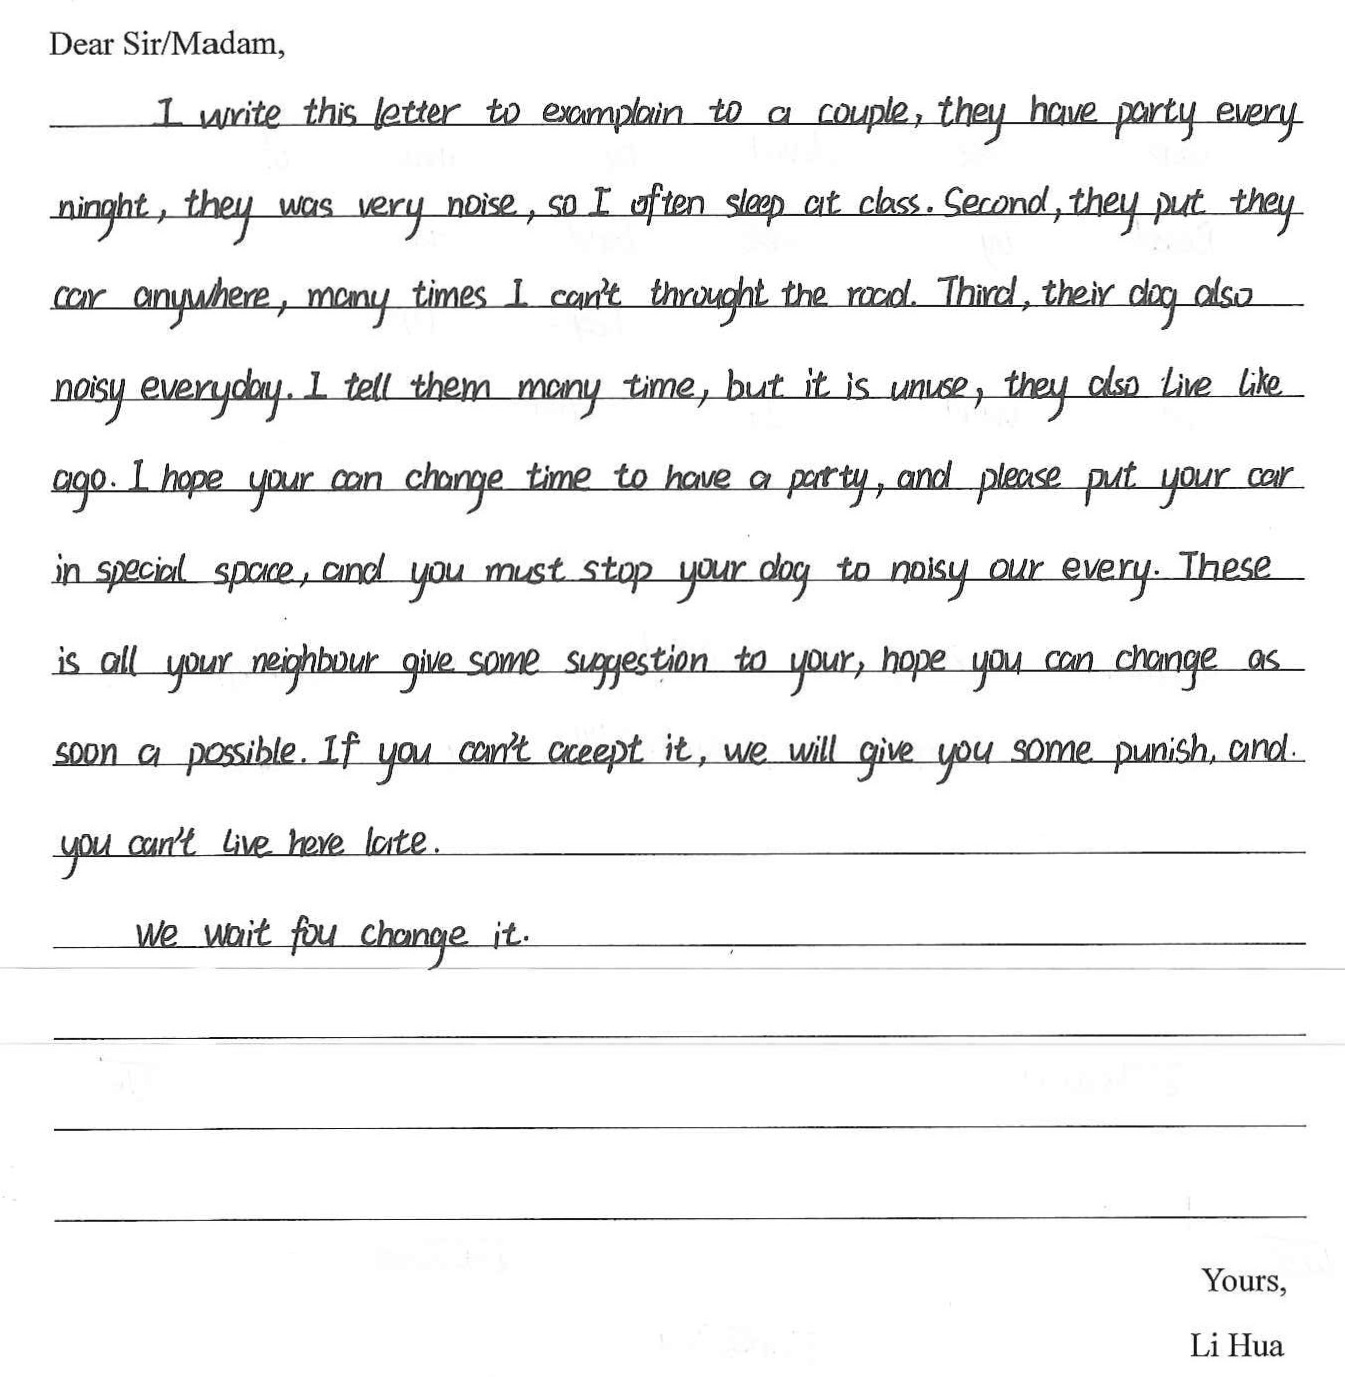 Dear Sir/Madam,
I write this letter to examplain to a couple, they have party every
ninght, they was very noise, so I often sleep at class. Second, they put they
car anywhere, many times I can't throught the road. Third, their dog also
noisy everyday. I tell them many time, but it is unuse, they also live like
ago. I hope your can change time to have a party, and please put your car
in special space, and you must stop your dog to noisy our every. These
is all your neighbour give some suggestion to your, hope you can change as
soon a possible. If you can't aceept it, we will give you some punish, and.
you can't live here late.
We wait fou change it.
Yours,
Li Hua